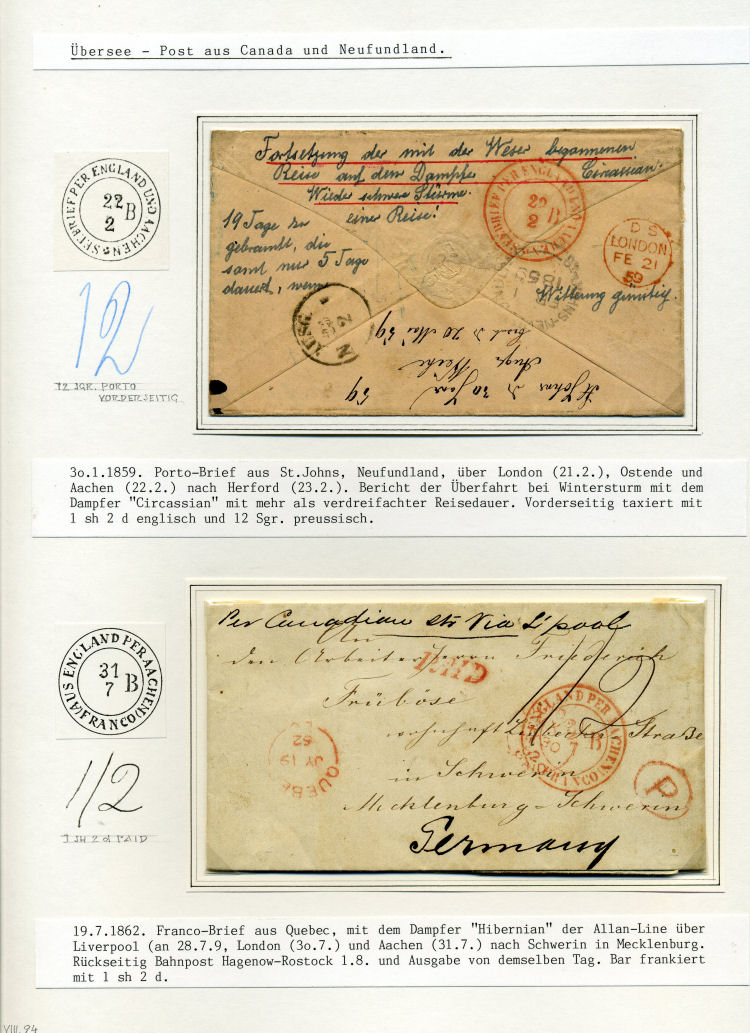 Übersee - Post aus Canada und Neufundland.
SEEBRIEF PER ENGLAND UND AACHEN
22
2
B
12
12 SGR. PORTO
VORDERSEITIG
Fortsetzung der mit der Weser begannenen
Reise auf dem Dampfer Circassian.
Wieder schwere Stürme.
19 Tage zu einer Reise!
gebraucht, die
samt nur 5 Tage
dauert, wenn
Witterung günstig.
SEEBRIEF PER ENGLAND UND AACHEN
22
2
B
D S
LONDON
FE 21
59
AUSG.
N 2
St Johns d 30 Jan 59
3o.1.1859. Porto-Brief aus St.Johns, Neufundland, über London (21.2.), Ostende und
Aachen (22.2.) nach Herford (23.2.). Bericht der Überfahrt bei Wintersturm mit dem
Dampfer "Circassian" mit mehr als verdreifachter Reisedauer. Vorderseitig taxiert mit
1 sh 2 d englisch und 12 Sgr. preussisch.
AUS ENGLAND PER AACHEN
FRANCO
31
7
B
1/2
1 SH 2 d PAID
Per Canadian str Via L'pool
An
den Arbeiter Herrn Friederich
Früböse
wohnhaft Lübecker Straße
in Schwerin
Mecklenburg-Schwerin
Germany
1/2
QUEBEC
JY 19
62
ENGLAND PER AACHEN
FRANCO
7
B
P
19.7.1862. Franco-Brief aus Quebec, mit dem Dampfer "Hibernian" der Allan-Line über
Liverpool (an 28.7.9, London (3o.7.) und Aachen (31.7.) nach Schwerin in Mecklenburg.
Rückseitig Bahnpost Hagenow-Rostock 1.8. und Ausgabe von demselben Tag. Bar frankiert
mit 1 sh 2 d.
VIII.94